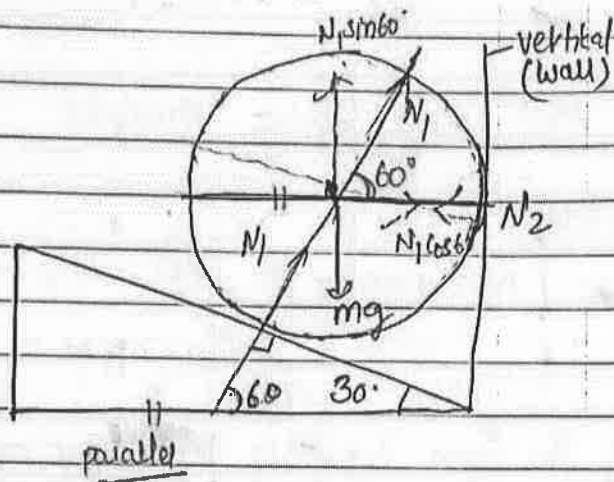 N₁sin60°
vertical
(wall)
N₁
60°
N₂
N₁
N₁cos6
mg
60
30°
parallel